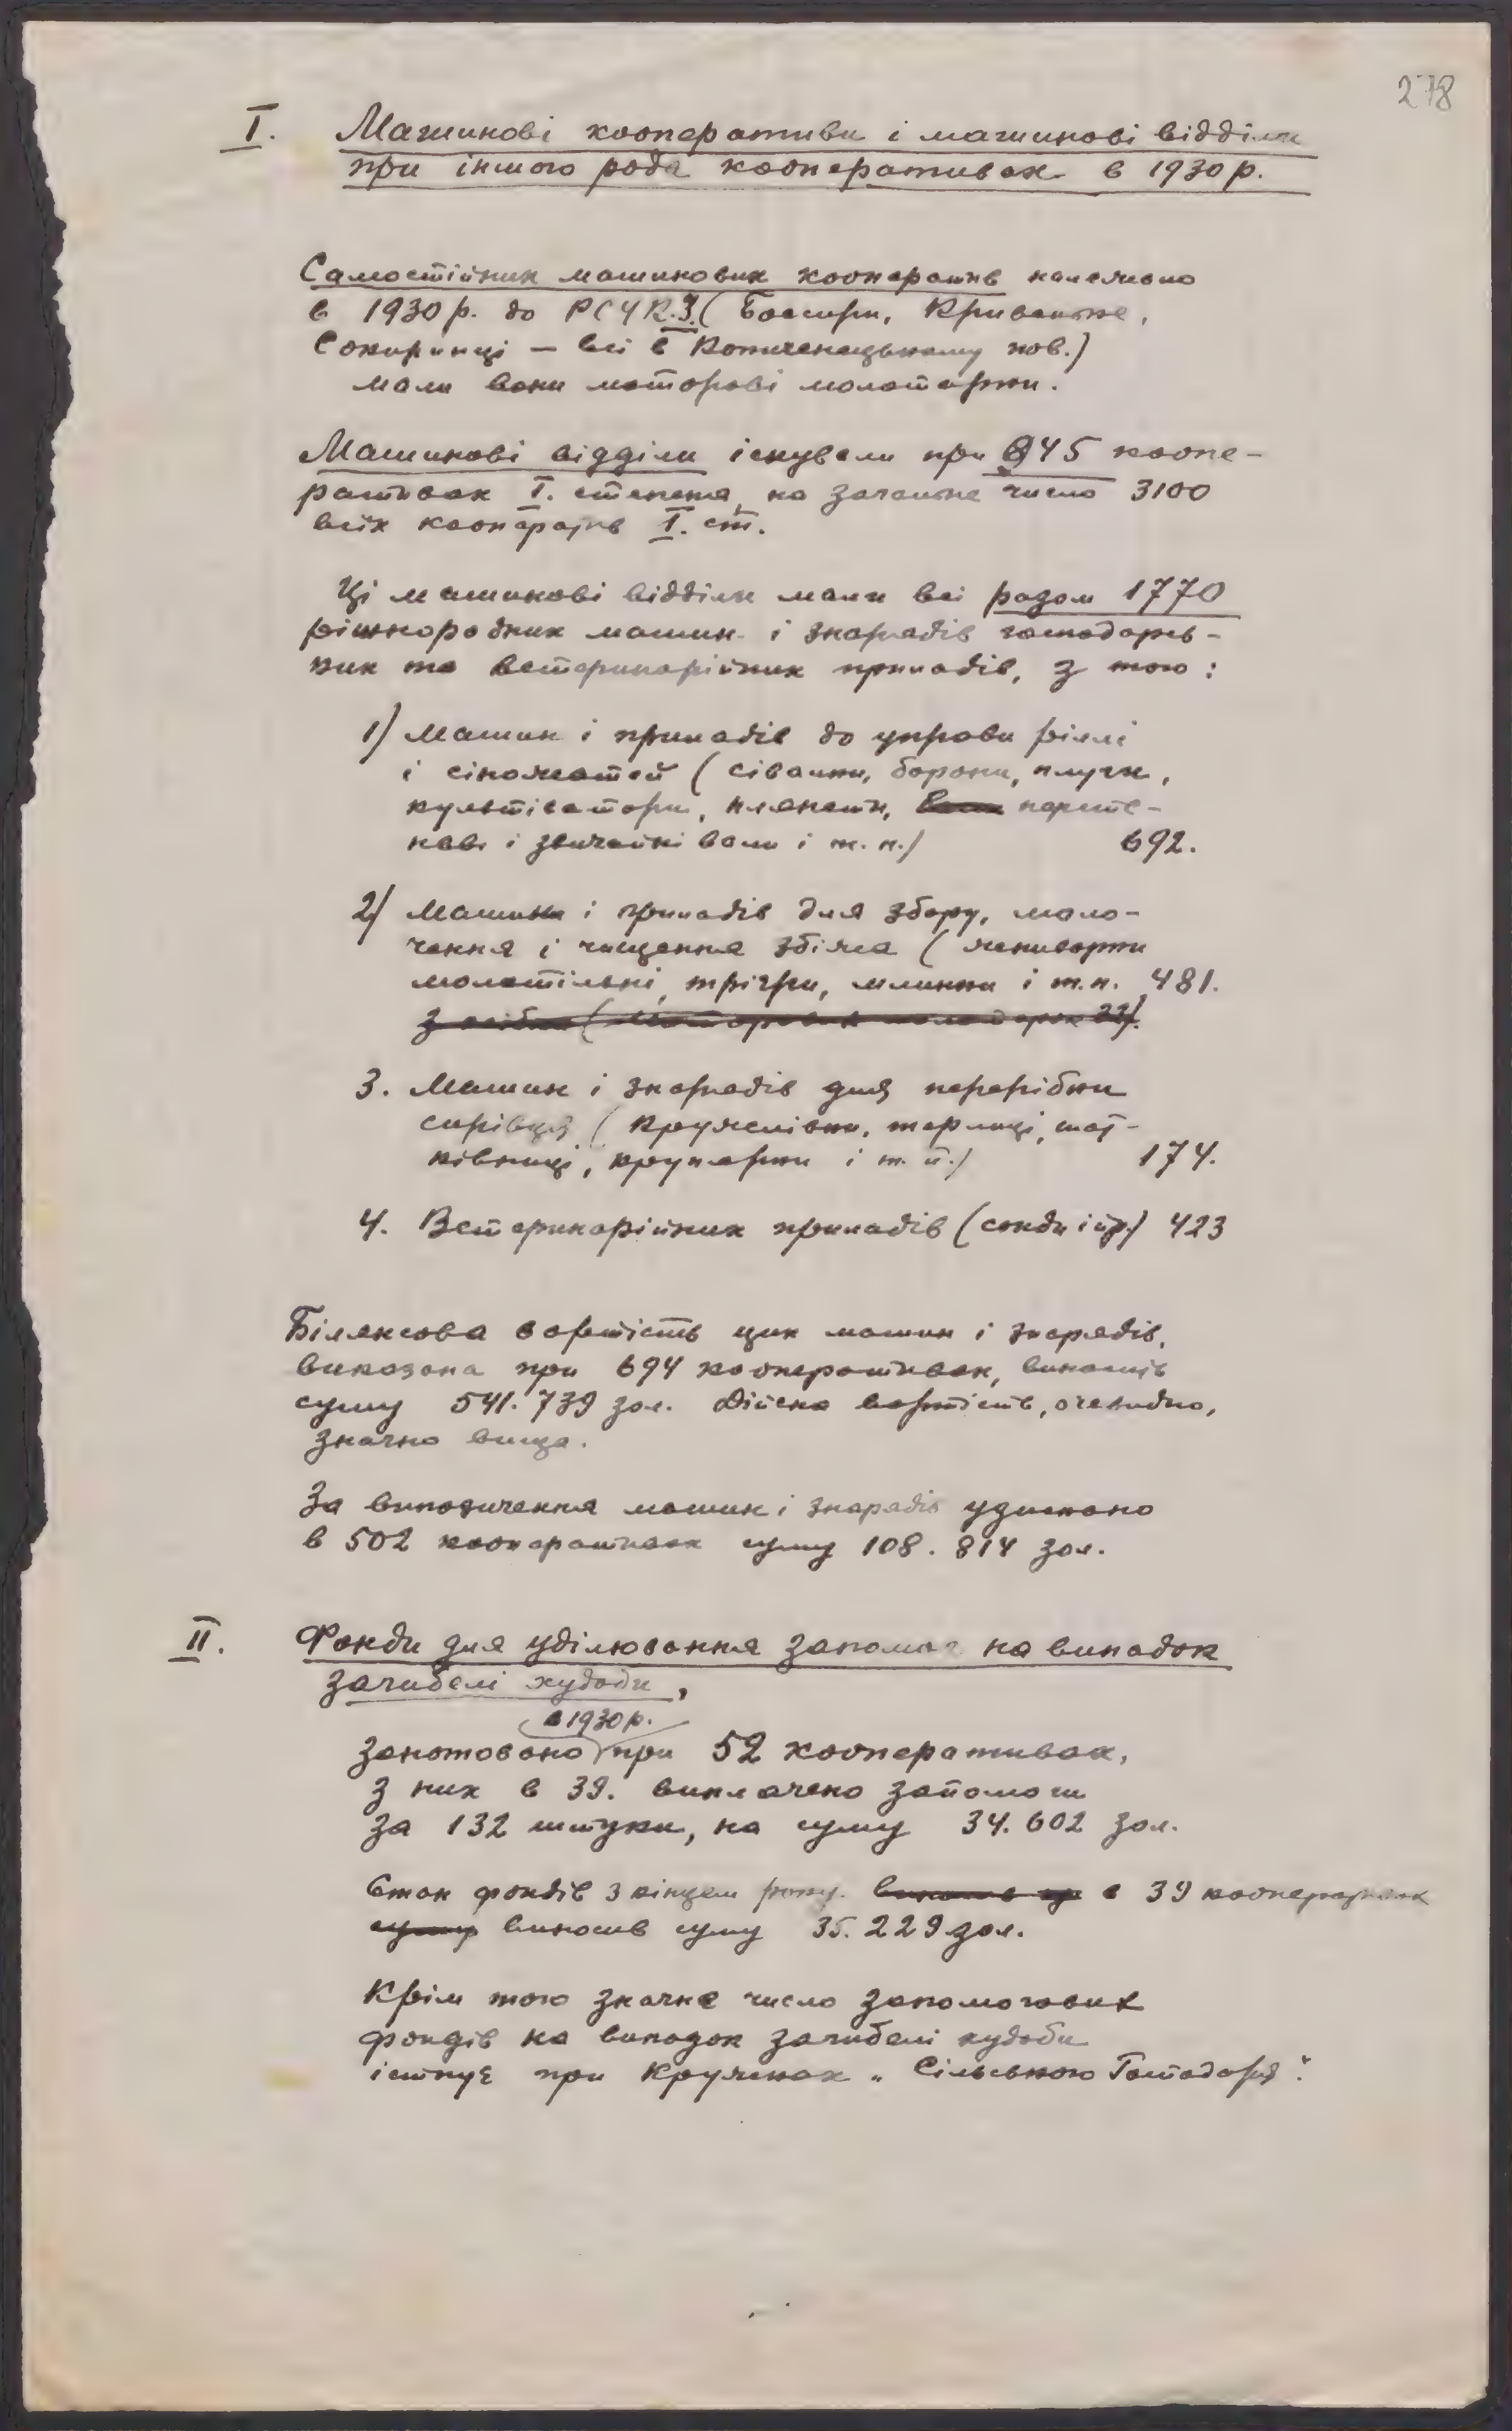 278
I. Машинові кооперативи і машинові відділи
при іншого рода кооперативах в 1930 р.
Самостійних машинових кооператив належало
в 1930 р. до РСУК. 3 (Босири, Криваньке,
Сокиринці — всі в Копиченецькому пов.)
мали вони моторові молотарки.
Машинові відділи існували при 845 коопе-
ративах I. степеня, на загальне число 3100
всіх кооператив I. ст.
Ці машинові відділи мали всі разом 1770
ріжнородних машин і знарядів господарсь-
ких та ветеринарійних приладів, з того:
1) Машин і приладів до управи ріллі
і сіножатей (сівалки, борони, плуги,
культіватори, плянети, персте-
неві і звичайні вали і т. п.) 692.
2) Машин і приладів для збору, моло-
чення і чищення збіжа (жниварки
молотільні, трієри, млинки і т.п. 481.
3. Машин і знарядів для перерібки
сирівця (кружелівки, терлиці, шат-
ківниці, крупарки і т. п.) 174.
4. Ветеринарійних приладів (сонди і пр.) 423
Білянсова вартість цих машин і знарядів,
виказана при 694 кооперативах, виносить
суму 541.739 зол. Дійсна вартість, очевидно,
значно вища.
За випозичення машин і знарядів узискано
в 502 кооперативах суму 108.814 зол.
II. Фонди для уділювання запомог на випадок
загибелі худоби,
в 1930 р.
занотовано при 52 кооперативах,
з них в 39. виплачено запомоги
за 132 штуки, на суму 34.602 зол.
Стан фондів з кінцем року в 39 кооперативах
виносив суму 35.229 зол.
Крім того значне число запомогових
фондів на випадок загибелі худоби
істнує при Кружках „Сільського Господаря".